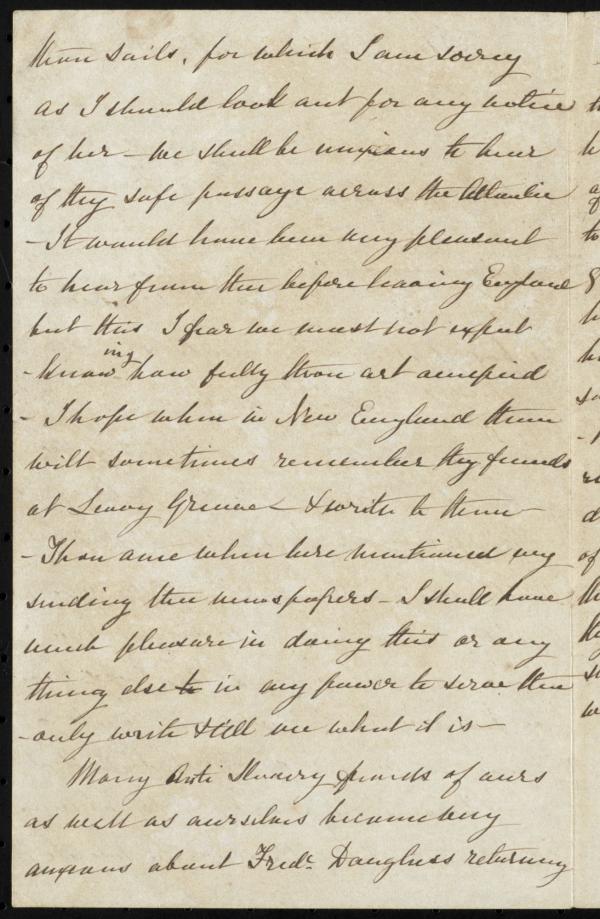 thou sails, for which I am sorry
as I should look out for any notice
of her – we shall be anxious to hear
of thy safe passage across the Atlantic
– It would have been very pleasant
to hear from thee before leaving England
but this I fear we must not expect
– knowing how fully thou art occupied
– I hope when in New England thou
wilt sometimes remember thy friends
at Grove & write to them –
– Thou when here mentioned my
sending thee newspapers – I shall have
much pleasure in doing this or any
thing else to in my power to serve thee
– only write & tell me what it is –
Many Anti Slavery friends of ours
as well as ourselves become very
anxious about Fredc. Douglass returning